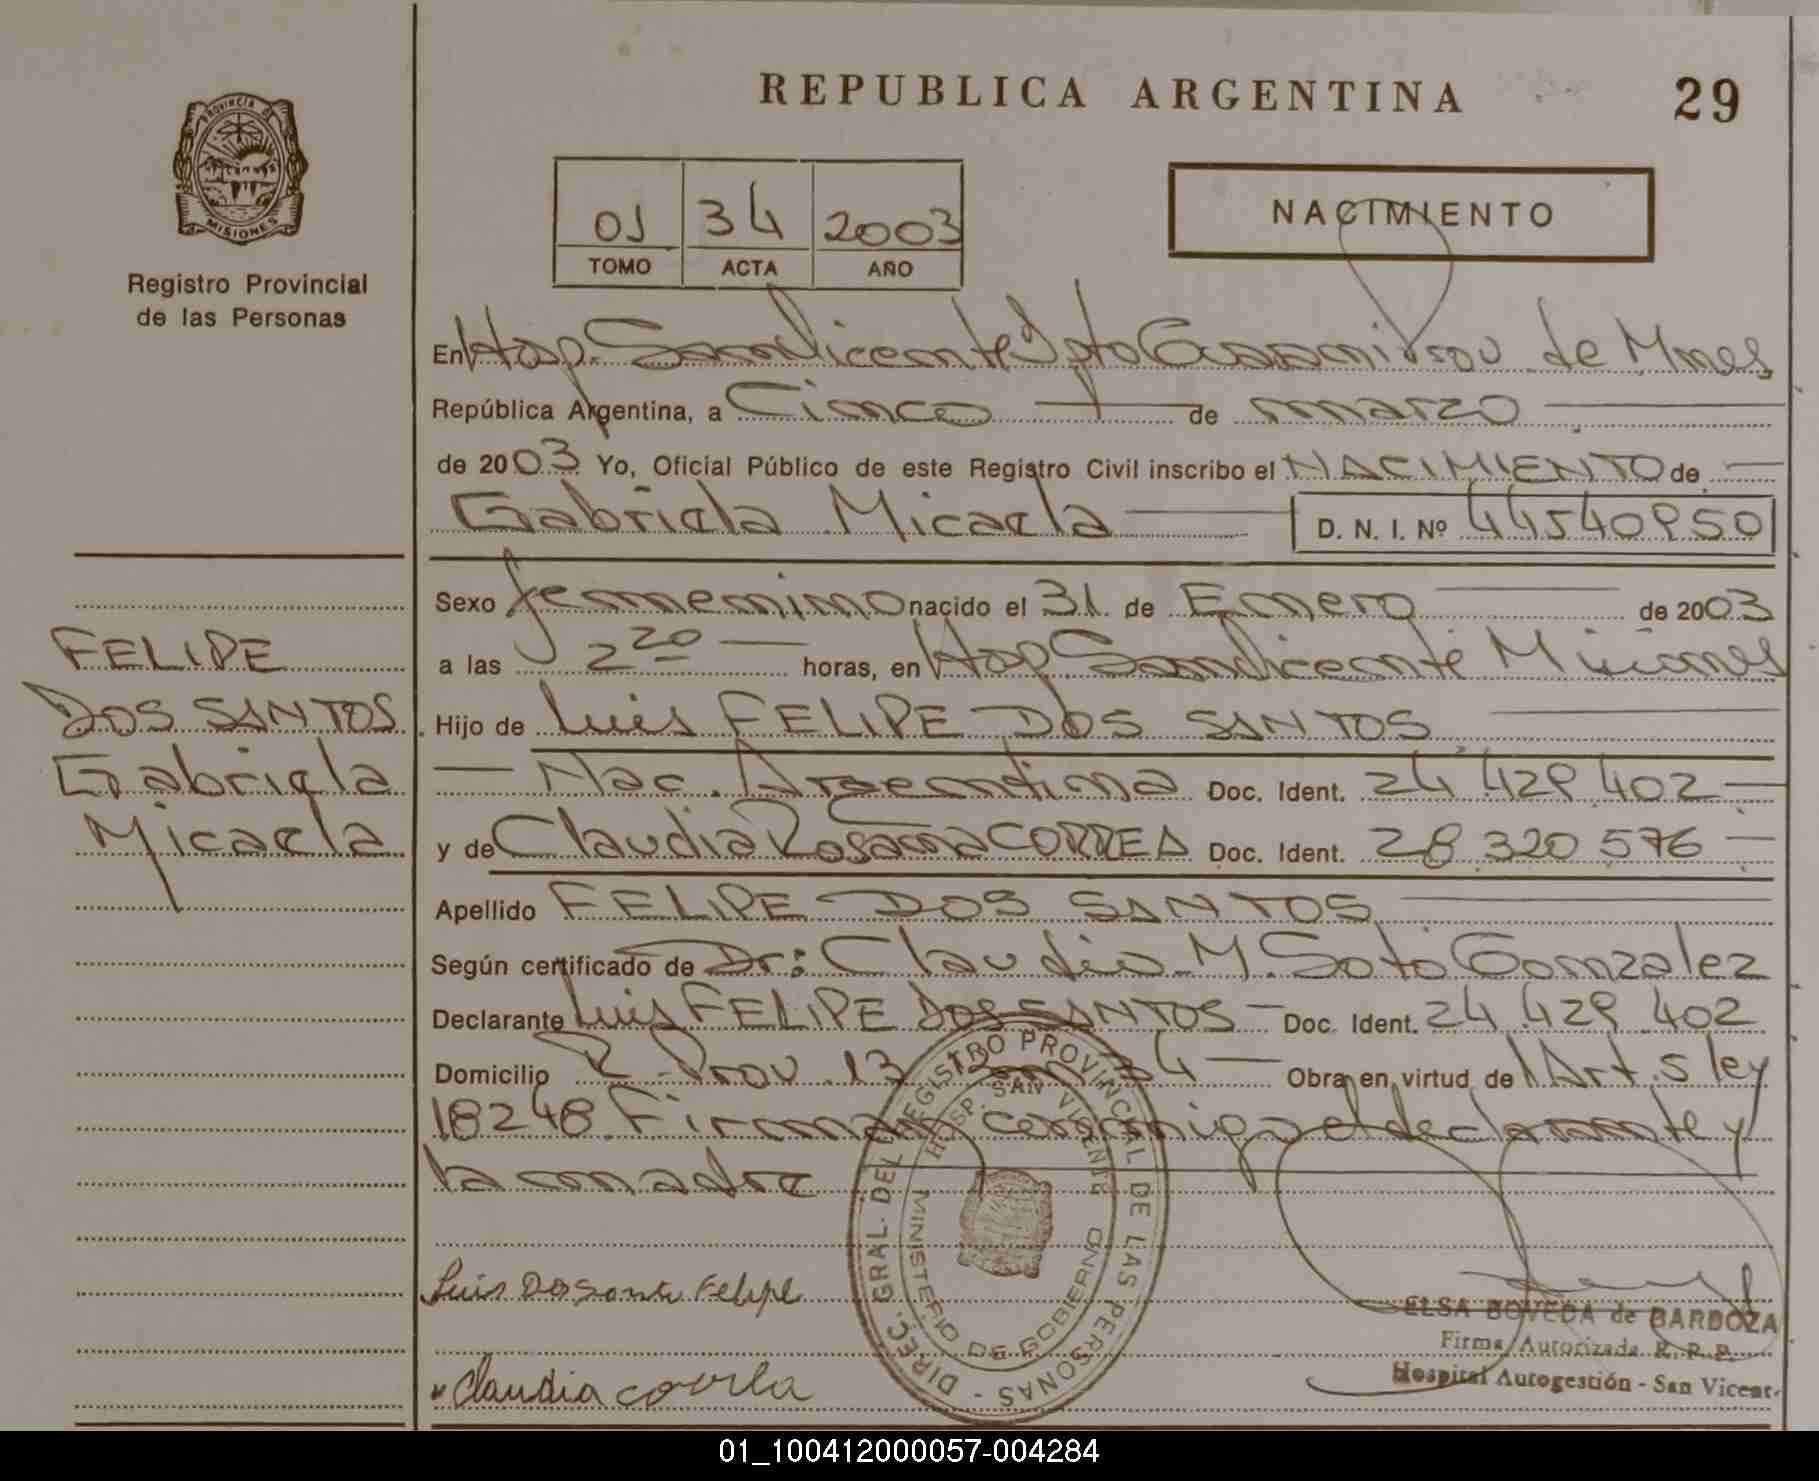 REPUBLICA ARGENTINA
29
PROVINCIA DE
MISIONES
Registro Provincial
de las Personas
01 34 2003
TOMO ACTA AÑO
NACIMIENTO
En Hosp. San Vicente Dpto Guaraní Prov de Mnes
República Argentina, a Cinco de marzo
de 2003 Yo, Oficial Público de este Registro Civil inscribo el NACIMIENTO de
Gabriela Micaela
D. N. I. Nº 44540950
Sexo femenino nacido el 31 de Enero de 2003
a las 2 20 horas, en Hosp San Vicente Misiones
Hijo de Luis FELIPE DOS SANTOS
Nac. Argentina Doc. Ident. 24 429 402
y de Claudia Rosana CORREA Doc. Ident. 28 320 576
Apellido FELIPE DOS SANTOS
Según certificado de Dr: Claudio M. Soto Gonzalez
Declarante Luis FELIPE DOS SANTOS Doc. Ident. 24 429 402
Domicilio R. Prov. 13 34 Obra en virtud de Art. 5 ley
18248 Firman conmigo el declarante y
la madre
FELIPE
DOS SANTOS
Gabriela
Micaela
DIREC. GRAL. DEL REGISTRO PROVINCIAL DE LAS PERSONAS -
HOSP. SAN VICENTE
MINISTERIO DE GOBIERNO
Luis Felipe
Claudia
ELSA BOVEDA de BARBOZA
Firma Autorizada R. P. P.
Hospital Autogestión - San Vicente
01_100412000057-004284